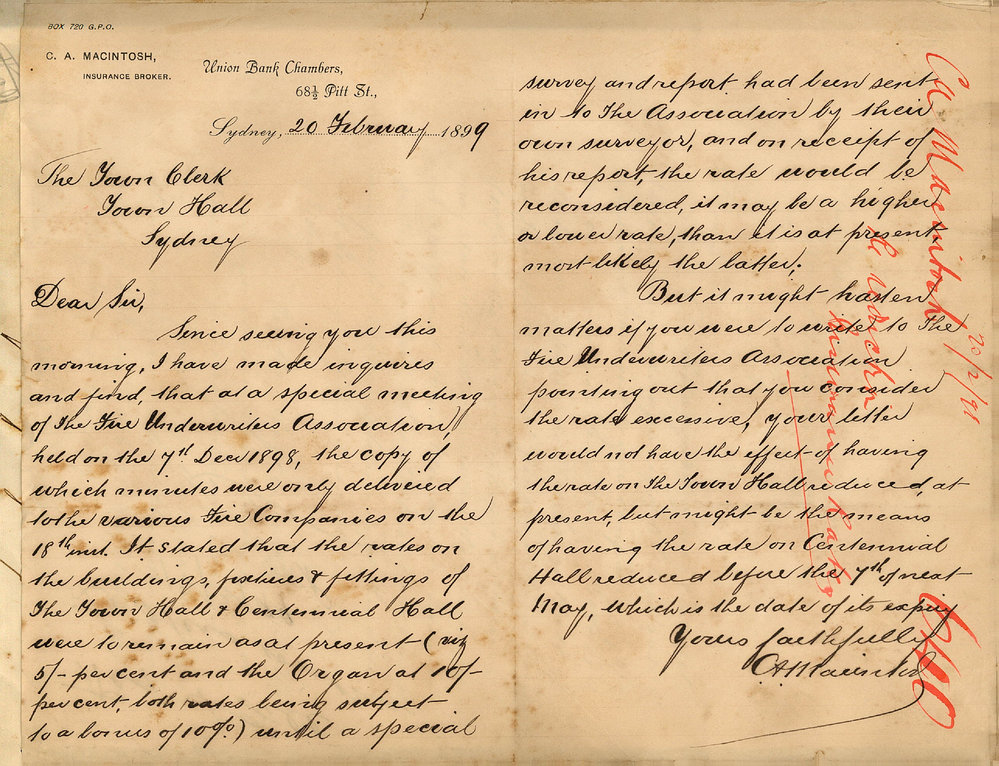 BOX 720 G.P.O.
C. A. MACINTOSH,
INSURANCE BROKER.
Union Bank Chambers,
68½ Pitt St.,
Sydney, 20 February 1899
The Town Clerk
Town Hall
Sydney
Dear Sir,
Since seeing you this
morning, I have made inquires
and find, that at a special meeting
of The Fire Underwriters Association,
held on the 7th Decr 1898, the copy of
which minutes were only delivered
to the various Fire Companies on the
18th inst. It stated that the rates on
the buildings, fixtures & fittings of
The Town Hall & Centennial Hall
were to remain as at present (viz
5/- per cent and the Organ at 10/-
per cent, both rates being subject
to a bonus of 10%) until a special
survey and report had been sent
in to The Association by their
own surveyor, and on receipt of
his report, the rate would be
reconsidered, it may be a higher
or lower rate, than it is at present,
most likely the latter.
But it might hasten
matters if you were to write to The
Fire Underwriters Association
pointing out that you consider
the rate excessive, your letter
would not have the effect of having
the rate on The Town Hall reduced, at
present, but might be the means
of having the rate on Centennial
Hall reduced before the 7th of next
May, which is the date of its expiry
Yours faithfully
C A Macintosh
C A Macintosh 20/2/99
Insurance Rates